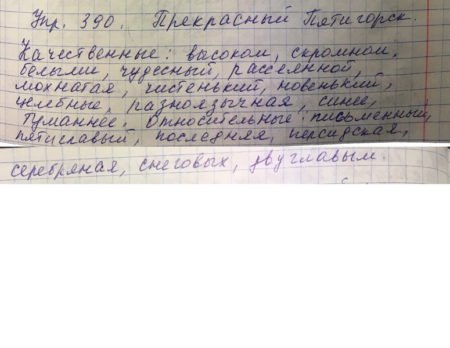 Упр. 390. Прекрасный Пятигорск.
Качественные: высоком, скромном,
белыми, чудесный, рассеянной,
мохнатая, чистенький, новенький,
целебные, разноязычная, синее,
туманнее. Относительные: письменный,
пятиглавый, последняя, персидская,
серебряная, снеговых, двуглавым.